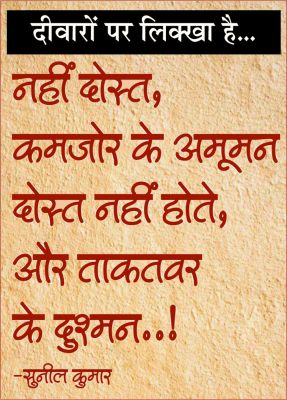 दीवारों पर लिक्खा है...
नहीं दोस्त,
कमजोर के अमूमन
दोस्त नहीं होते,
और ताकतवर
के दुश्मन..!
-सुनील कुमार